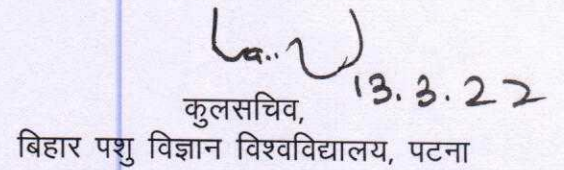 13.3.22
कुलसचिव,
बिहार पशु विज्ञान विश्वविद्यालय, पटना